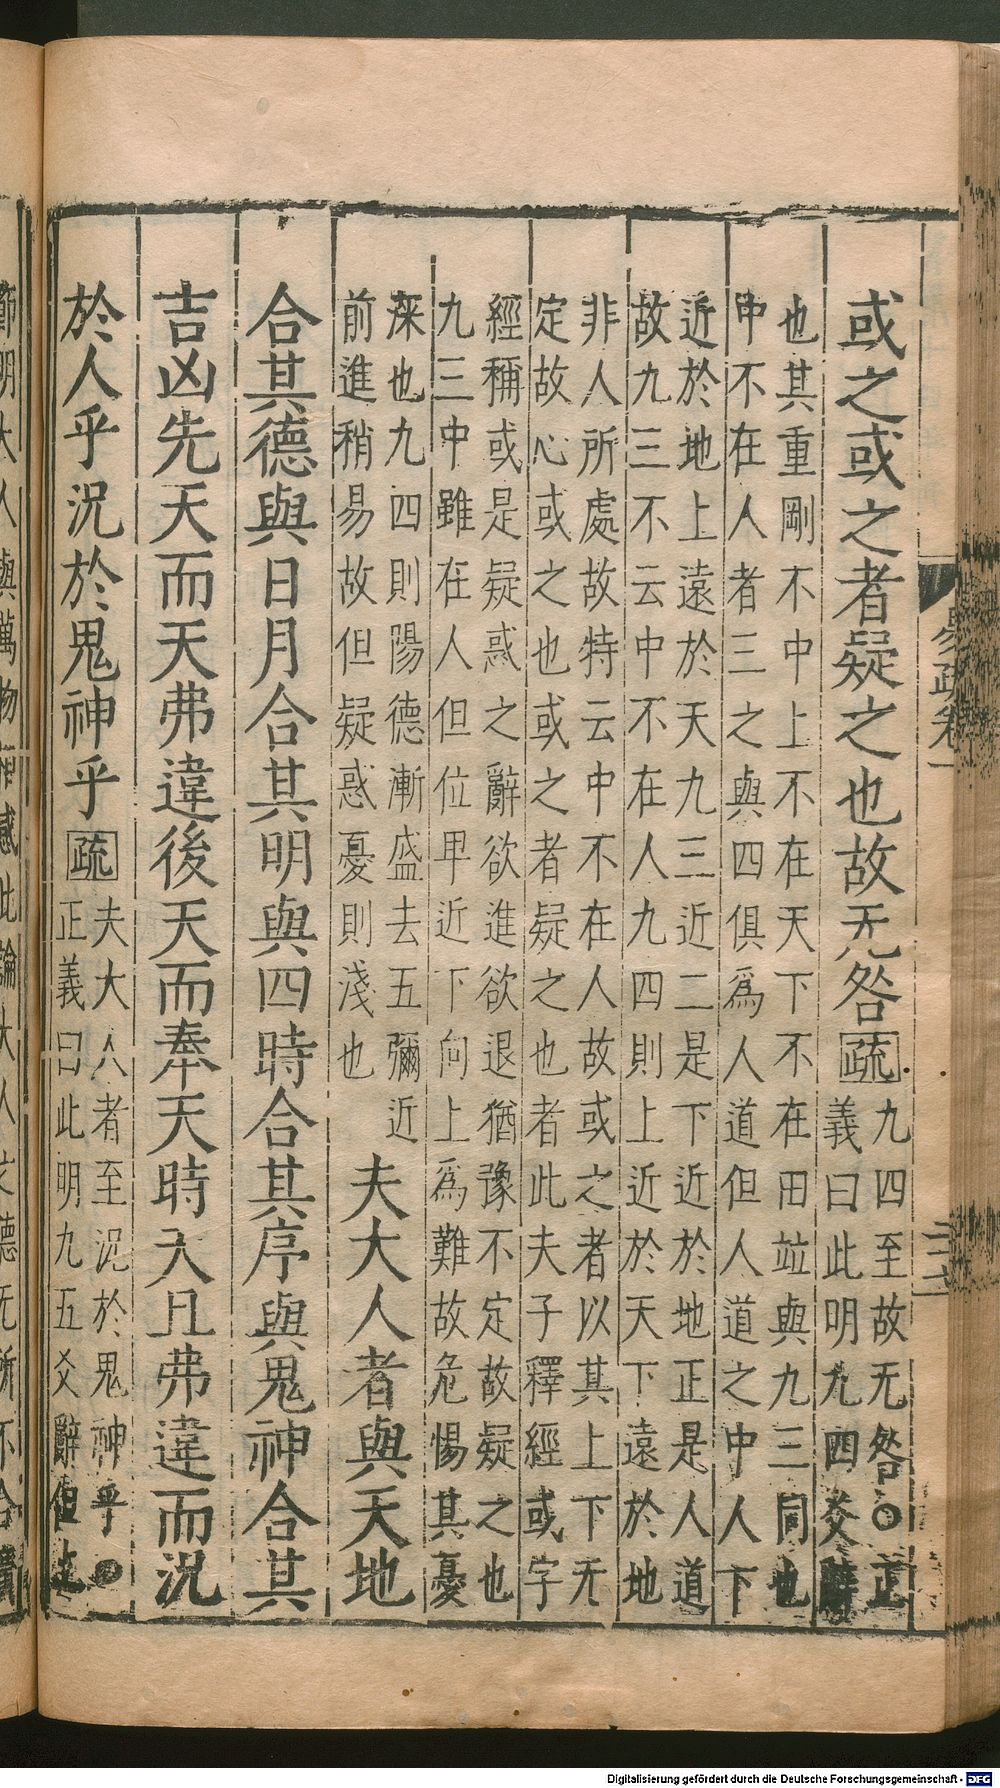 易疏卷一
二十六
或之或之者疑之也故无咎疏九四至故无咎○正
義曰此明九四爻辭
也其重剛不中上不在天下不在田竝與九三同也
中不在人者三之與四俱爲人道但人道之中人下
近於地上遠於天九三近二是下近於地正是人道
故九三不云中不在人九四則上近於天下遠於地
非人所處故特云中不在人故或之者以其上下无
定故心或之也或之者疑之也者此夫子釋經或字
經稱或是疑惑之辭欲進欲退猶豫不定故疑之也
九三中雖在人但位卑近下向上爲難故危惕其憂
深也九四則陽德漸盛去五彌近
前進稍易故但疑惑憂則淺也
夫大人者與天地
合其德與日月合其明與四時合其序與鬼神合其
吉凶先天而天弗違後天而奉天時天且弗違而況
於人乎況於鬼神乎疏夫大人者至況於鬼神乎○
正義曰此明九五爻辭但上
節明大人與萬物相感此論大人之德无所不合廣
Digitalisierung gefördert durch die Deutsche Forschungsgemeinschaft - DFG